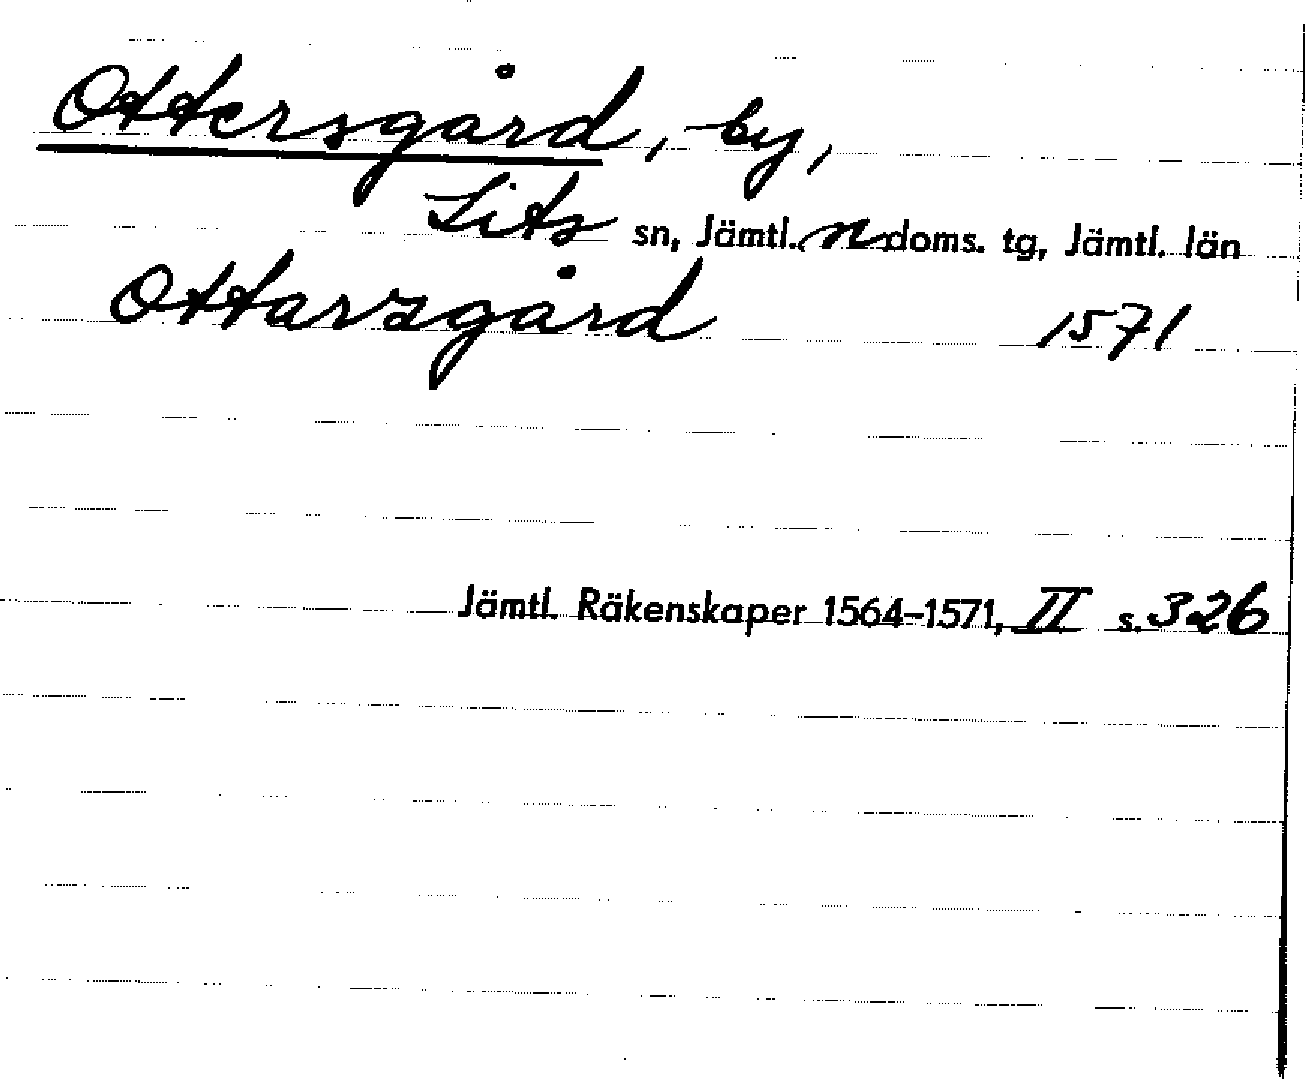 Ottersgård, by,
Lits sn, Jämtl. n doms. tg, Jämtl. län
Ottarsgård 1571
Jämtl. Räkenskaper 1564-1571, II s. 326